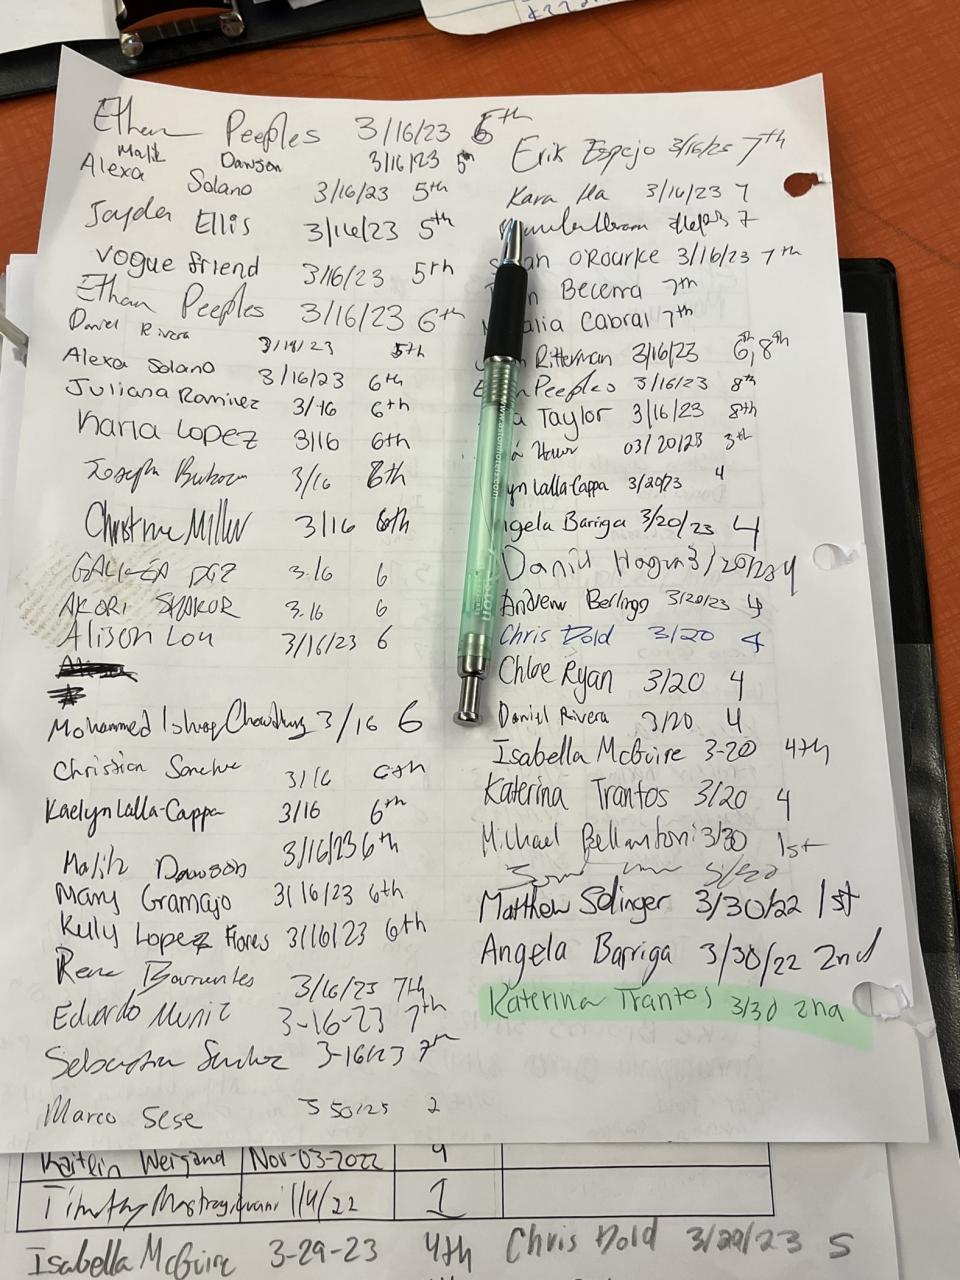 Ethan Peeples 3/16/23 6th
Malik Dawson 3/16/23 5th
Alexa Solano 3/16/23 5th
Jayda Ellis 3/16/23 5th
vogue friend 3/16/23 5th
Ethan Peeples 3/16/23 6th
Daniel Rivera 3/14/23 5th
Alexa Solano 3/16/23 6th
Juliana Ramirez 3/16 6th
Karla Lopez 3/16 6th
Joseph 3/16 6th
Christine Miller 3/16 6th
3.16 6
AKORI SHAKUR 3.16 6
Alison Lou 3/16/23 6
Mohammed Ishaq Chowdhury 3/16 6
Christian 3/16 6th
Kaelyn Lalla-Cappa 3/16 6th
Malik Dawson 3/16/23 6th
Mary Gramajo 3/16/23 6th
Kelly Lopez Flores 3/16/23 6th
Rene Barrientes 3/16/23 7th
Eduardo Muniz 3-16-23 7th
Sebastian 3-16/23 7th
Marco Sese 2
Erik Espejo 3/16/23 7th
Kara Ha 3/16/23 7
7
an O'Rourke 3/16/23 7th
n Becerra 7th
alia Cabral 7th
Ritterman 3/16/23 6th, 8th
Peeples 3/16/23 8th
a Taylor 3/16/23 8th
03/20/23 3th
yn Lalla-Cappa 3/20/23 4
ngela Bariga 3/20/23 4
Daniel 3/20/23 4
Andrew Berlingo 3/20/23 4
Chris Dold 3/20 4
Chloe Ryan 3/20 4
Daniel Rivera 3/20 4
Isabella McGuire 3-20 4th
Katerina Trantos 3/20 4
Michael Bellantoni 3/30 1st
Matthew Solinger 3/30/22 1st
Angela Barriga 3/30/22 2nd
Katerina Trantos 3/30 2nd
www.astonhotels.com
Kaitlin Weigand Nov-03-2022 4
Timothy 11/4/22 1
Isabella McGuire 3-29-23 4th
Chris Dold 3/29/23 5